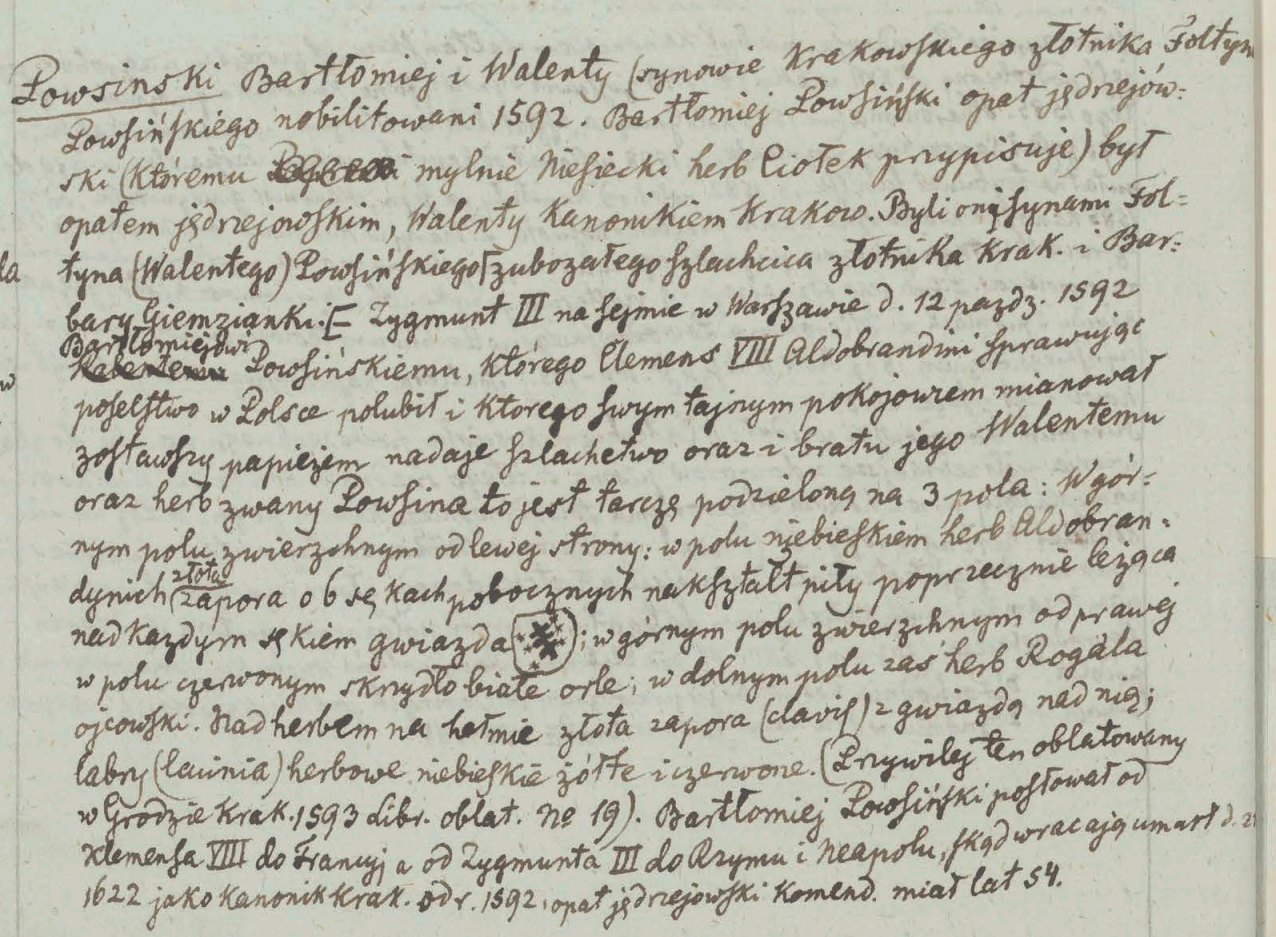 Powsinski Bartłomiej i Walenty (synowie Krakowskiego złotnika Foltyn
Powsińskiego nobilitowani 1592. Bartłomiej Powsiński opat jędrzejów:
ski (któremu mylnie Niesiecki herb Ciołek przypisuje) był
opatem jędrzejowskim, Walenty Kanonikiem Krakow. Byli oni synami Fol=
tyna (Walentego) Powsińskiego zubozałego szlachcica złotnika Krak. i Bar:
bary Giemzianki. [ Zygmunt III na sejmie w Warszawie d. 12 pazdz. 1592
Bartłomiejowi
Powsińskiemu, którego Clemens VIII Aldobrandini sprawując
poselstwo w Polsce polubił i ktorego swym tajnym pokojowzem mianował
zostawszy papieżem nadaje szlachetwo oraz i bratu jego Walentemu
oraz herb zwany Powsina to jest tarczę podzieloną na 3 pola: W gór=
nym polu zwierzchnym od lewej strony: w polu niebieskiem herb Aldobran=
dynich złota zapora o 6 sękach pobocznych nakształt piły poprzecznie leżąca
nad kazdym sękiem gwiazda ( ); w górnym polu zwierzchnym od prawej
w polu czerwonym skrzydło białe orle; w dolnym polu zas herb Rogala
ojcowski. Nad herbem na hełmie złota zapora (clavis) z gwiazdą nad nią;
labry (lacinia) herbowe niebieskie żółte i czerwone. (Przywilej ten oblatowany
w Grodzie Krak. 1593 Libr. oblat. No 19). Bartłomiej Powsiński posłował od
Klemensa VIII do Francyj a od Zygmunta III do Rzymu i Neapolu, skąd wracają umarł d.
1622 jako Kanonik Krak. od r. 1592, opat jędrzejowski Komend. miał lat 54.